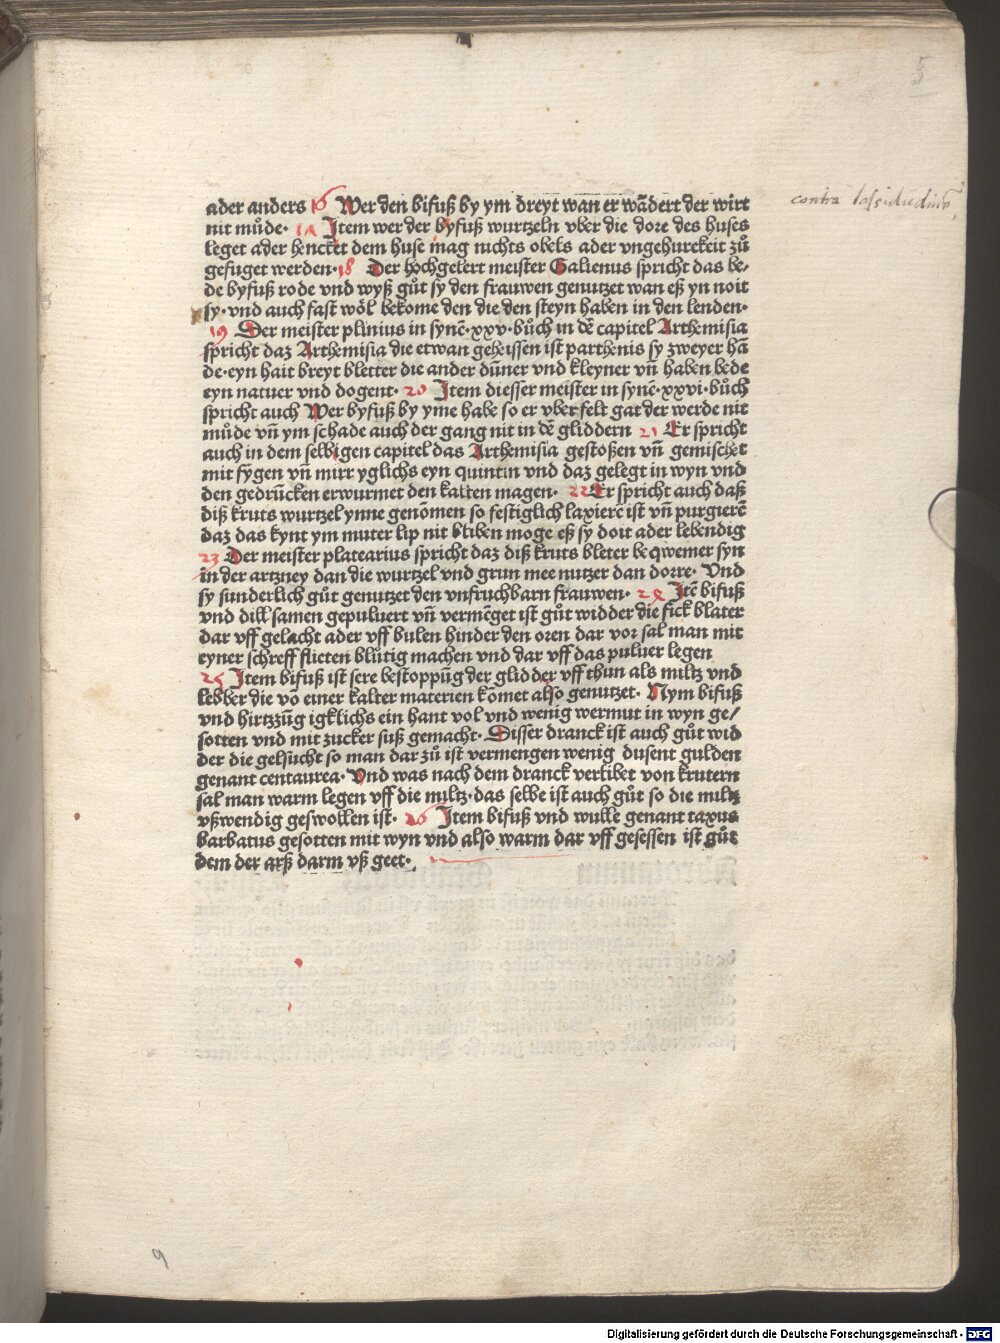 5
ader anders 16 Wer den bifuß by ym dreyt wan er wãdert der wirt
contra lassitudinẽ
nit můde· 17 Jtem wer der byfuß wurtzeln vber die dore des huses
leget ader hencket dem huse mag nichts obels ader vngehurekeit zů
gefuget werden· 18 Der hochgelert meister Galienus spricht das be-
de byfuß rode vnd wyß gůt sy den frauwen genutzet wan eß yn noit
sy·vnd auch fast wõl bekome den die den steyn haben in den lenden·
19 Der meister plinius in synẽ·xxv·bůch in dẽ capitel Arthemisia
spricht daz Arthemisia die etwan geheissen ist parthenis sy zweyer hã
de·eyn hait breyt bletter die ander dũner vnd kleyner vñ haben bede
eyn natuer vnd dogent· 20 Jtem diesser meister in synẽ·xxvi·bůch
spricht auch Wer byfuß by yme habe so er vber felt gat der werde nit
můde vñ ym schade auch der gang nit in dẽ gliddern 21 Er spricht
auch in dem selbigen capitel das Arthemisia gestoßen vñ gemischet
mit fygen vñ mirr yglichs eyn quintin vnd daz gelegt in wyn vnd
den gedruncken erwurmet den kalten magen· 22 Er spricht auch daß
diß kruts wurtzel ynne genõmen so festiglich laxierẽ ist vñ purgierẽ
daz das kynt ym muter lip nit bliben moge eß sy doit ader lebendig
23 Der meister platearius spricht daz diß kruts bleter beqwemer syn
in der artzney dan die wurtzel vnd grun mee nutzer dan dorre· Vnd
sy sunderlich gůt genutzet den vnfruchbarn frauwen· 24 Jtẽ bifuß
vnd dill samen gepuluert vñ vermẽget ist gůt widder die fick blater
dar vff gelacht ader vff bulen hinder den oren dar vor sal man mit
eyner schreff flieten blůtig machen vnd dar vff das puluer legen
25 Jtem bifuß ist sere bestoppũg der glidder vff thun als miltz vnd
lebber die võ einer kalter materien kõmet also genutzet· Nym bifuß
vnd hirtzzũg igklichs ein hant vol vnd wenig wermut in wyn ge/
sotten vnd mit zucker suß gemacht· Disser dranck ist auch gůt wid
der die gelsucht so man dar zů ist vermengen wenig dusent gulden
genant centaurea· Vnd was nach dem dranck verlibet von krutern
sal man warm legen vff die miltz·das selbe ist auch gůt so die miltz
vßwendig geswollen ist· 26 Jtem bifuß vnd wulle genant taxus
barbatus gesotten mit wyn vnd also warm dar vff gesessen ist gůt
dem der arß darm vß geet·
9
Digitalisierung gefördert durch die Deutsche Forschungsgemeinschaft - DFG